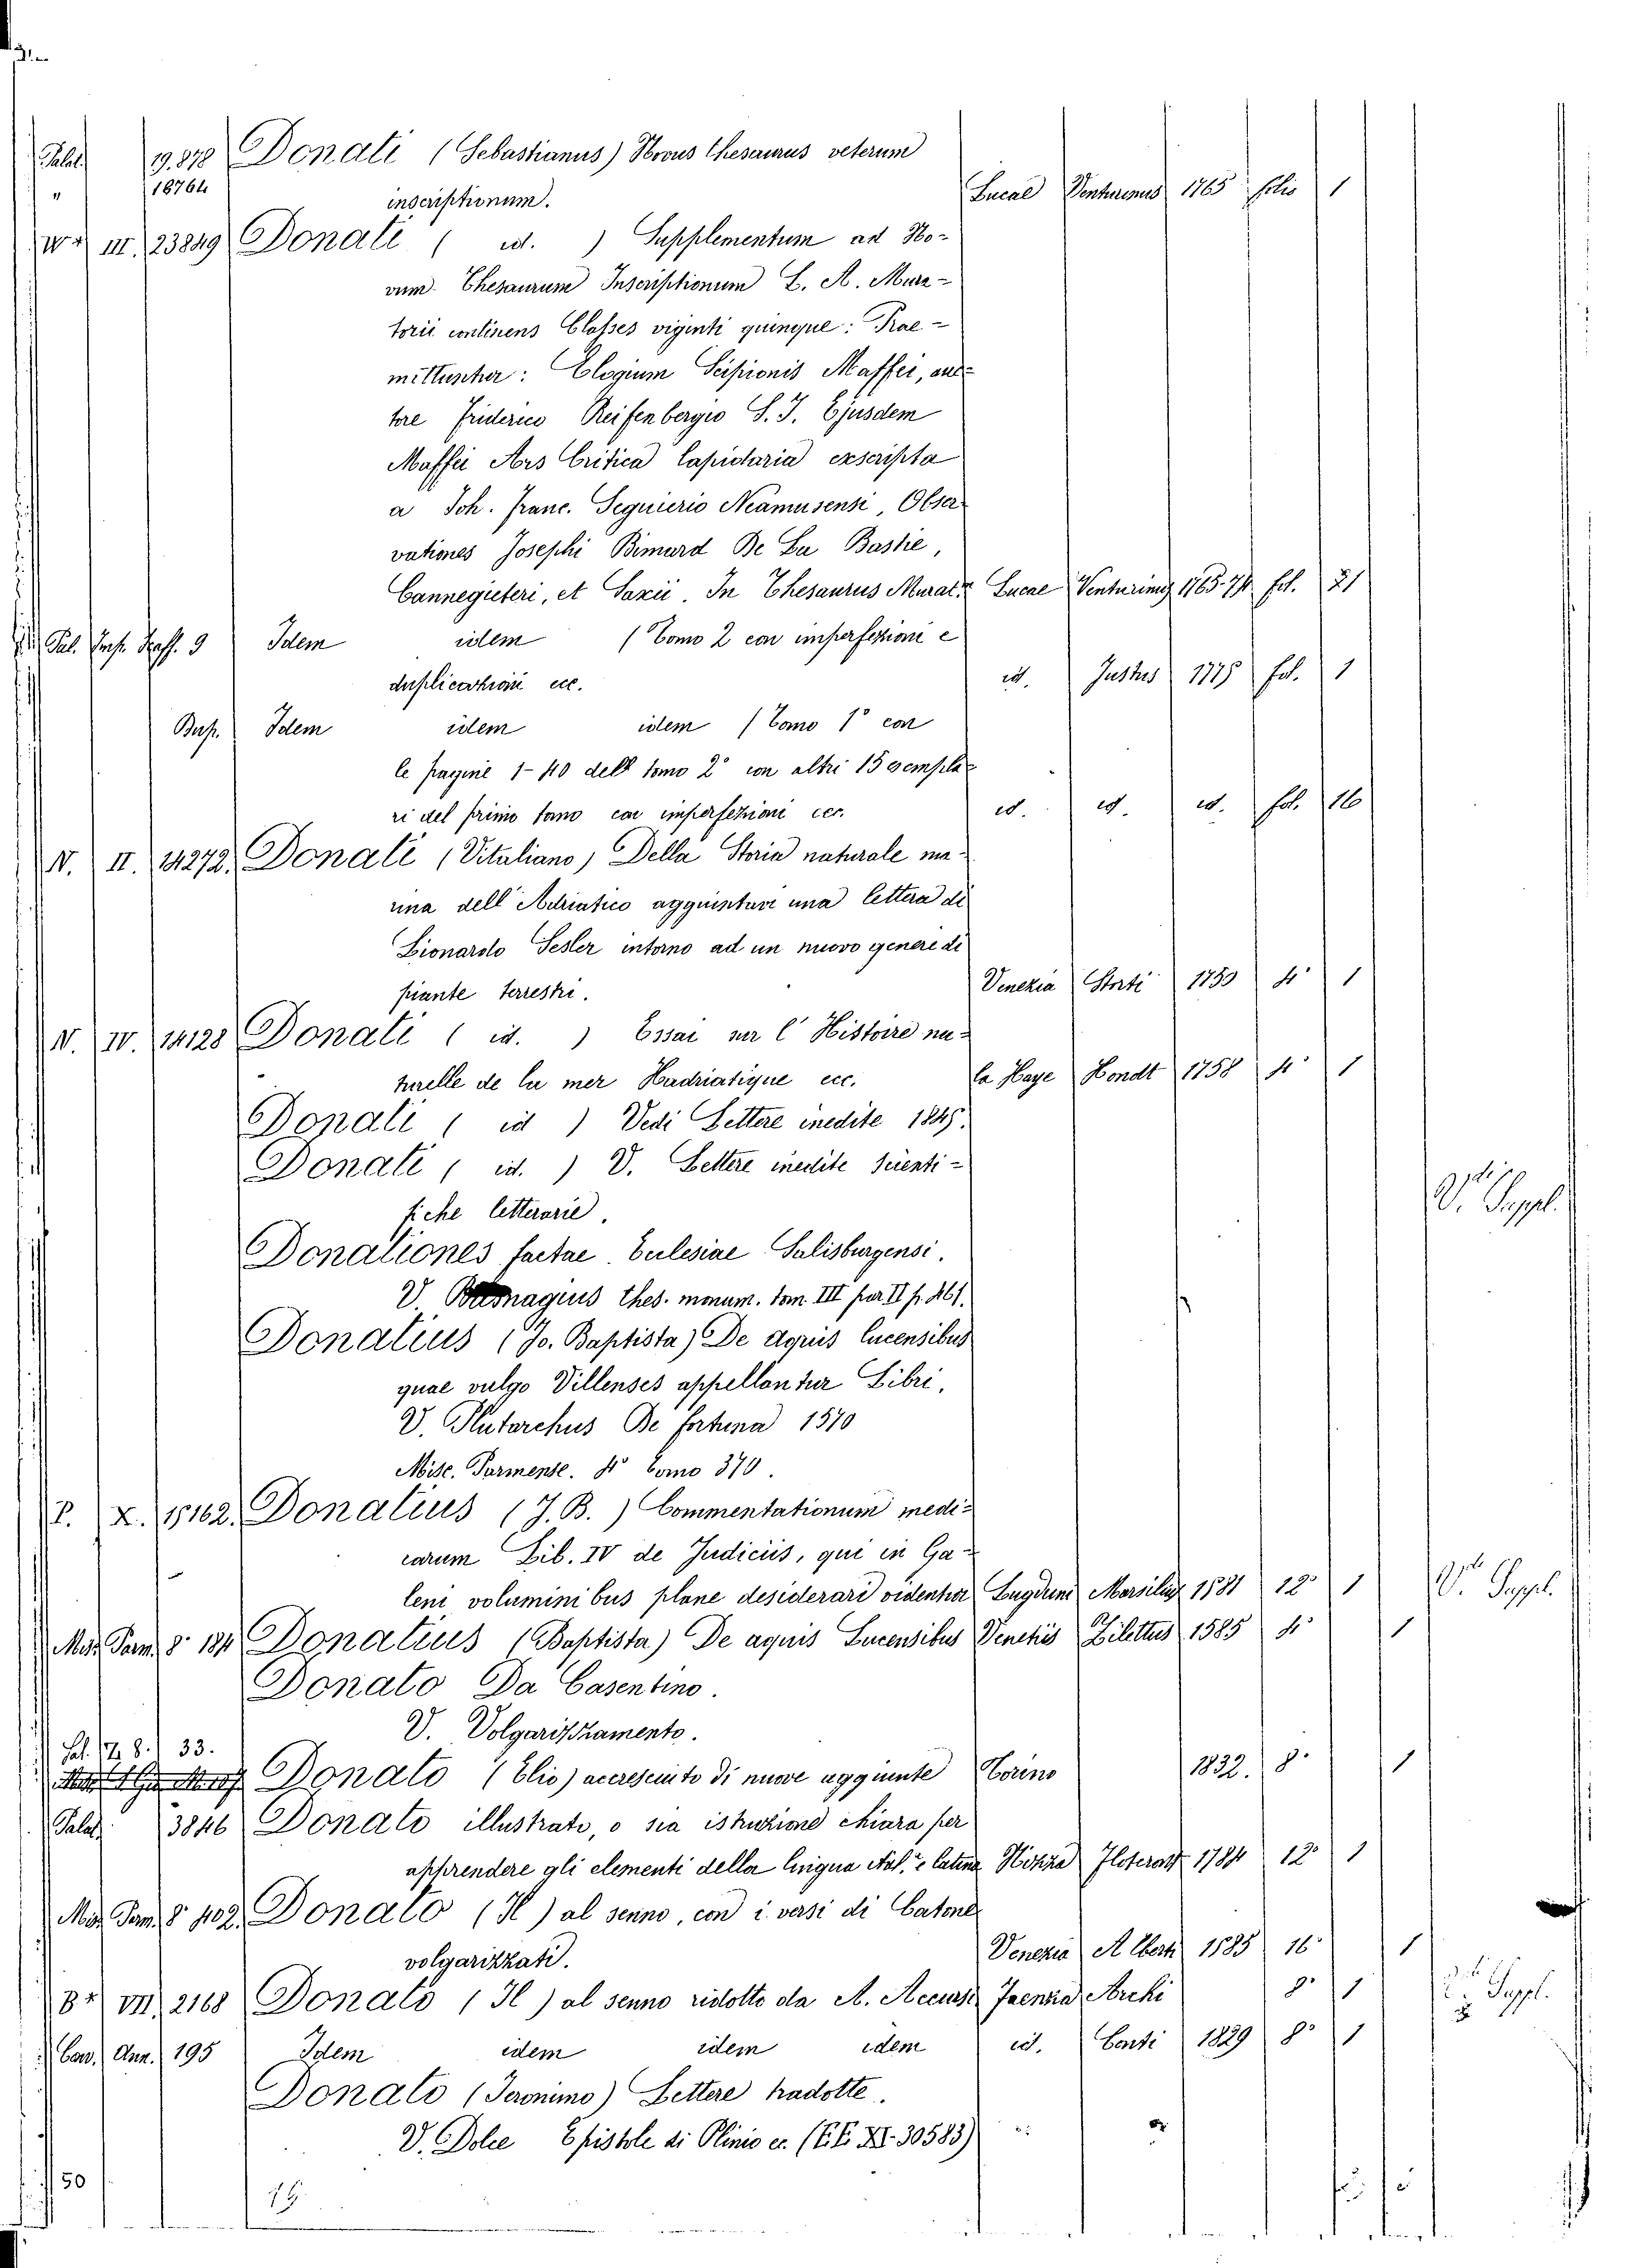 Palat. 19.878 Donati (Sebastianus) Novus Thesaurus veterum
" 18764 inscriptionum. Lucae Venturinus 1765 folio 1
III. 23849 Donati ( id. ) Supplementum ad No-
vum Thesaurum Inscriptionum L. A. Mura-
torii continens Classes viginti quinque: Prae-
mittuntur: Elogium Scipionis Maffei, auc-
tore Friderico Reifenbergio S. J. Ejusdem
Maffei Ars Critica lapidaria exscripta
a Joh. Franc. Seguierio Neamusensi, Obser
vationes Josephi Bimard De La Bastie,
Cannegieteri, et Saxii. In Thesaurus Murat. Lucae Venturinus 1765-74 fol. 21
Pal. 9 Idem idem (Tomo 2 con imperfezioni e
duplicazioni ecc. id. Justus 1775 fol. 1
Idem idem idem (Tomo 1° con
le pagine 1-40 del tomo 2° con altri 15 esempla
ri del primo tomo con imperfezioni ecc. id. id. id. fol. 16
N. II. 14272. Donati (Vitaliano) Della Storia naturale ma-
rina dell'Adriatico aggiuntavi una lettera di
Lionardo Sesler intorno ad un nuovo genere di
piante terrestri. Venezia Storti 1750 4° 1
N. IV. 14128 Donati ( id. ) Essai sur l'Histoire na-
turelle de la mer Hadriatique ecc. la Haye Hondt 1758 4° 1
Donati ( id ) Vedi Lettere inedite 1845.
Donati ( id. ) V. Lettere inedite scienti-
fiche letterarie. V. Suppl.
Donationes factae Ecclesiae Salisburgensi.
V. Basnagius Thes. monum. tom. III par II p. 461.
Donatius (Jo. Baptista) De Aquis lucensibus
quae vulgo Villenses appellantur Libri,
V. Plutarchus De fortuna 1570
Misc. Parmense. 4° Tomo 370.
P. X. 15162. Donatius (J. B.) Commentationum medi-
carum Lib. IV de Judiciis, qui in Ga-
leni voluminibus plane desiderari videntur Lugduni Marsilius 1581 12° 1 V. Suppl.
8° 184 Donatius (Baptista) De aquis Lucensibus Venetiis Zilettus 1585 4° 1
Donato Da Casentino.
V. Volgarizzamento.
8. 33.
Donato (Elio) accresciuto di nuove aggiunte Torino 1832. 8° 1
Palat. 3846 Donato illustrato, o sia istruzione chiara per
apprendere gli elementi della lingua ital. e latina Nizza Floteront 1784 12° 1
8° 402. Donato (Il) al senno, con i versi di Catone
volgarizzati. Venezia Alberti 1585 16° 1
VII. 2168 Donato (Il) al senno ridotto da A. Accursi Faenza Archi 8° 1 Suppl.
Ann. 195 Idem idem idem idem id. Conti 1829 8° 1
Donato (Jeronimo) Lettere tradotte.
V. Dolce Epistole di Plinio ec. (XI. 30583)
50